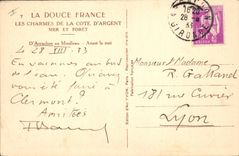 LA DOUCE FRANCE
LES CHARMES DE LA COTE D'ARGENT
MER ET FORÊT
D'Arcachon au Moulleau. - Avant la nuit
Le 28 VIII 33
En vacances au bord
de l'eau.
vous été faire à
Clermont ?
Amitiés
Monsieur Madame
R. Gattand
181 rue Cuvier
Lyon
GIRONDE